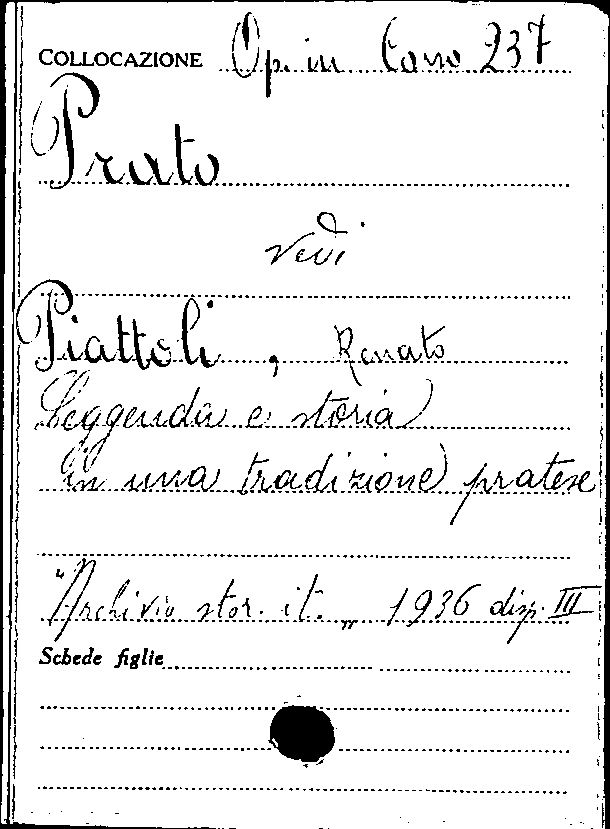 COLLOCAZIONE Op. in Cons 237
Prato
vedi
Piattoli, Renato
Leggenda e storia
in una tradizione pratese
"Archivio stor. it.„ 1936 disp. III
Schede figlie